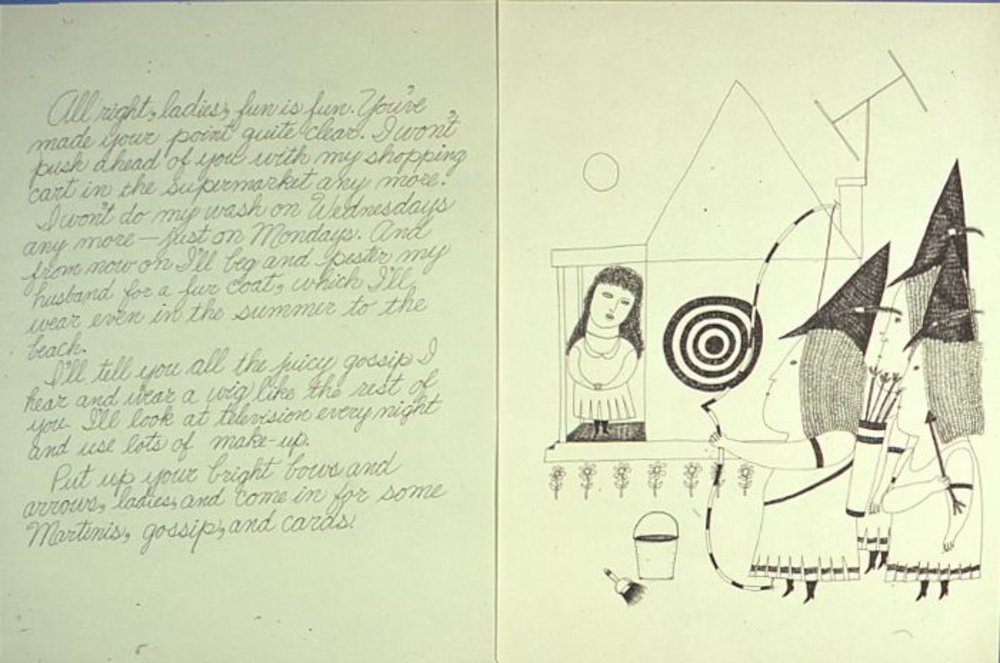 All right, ladies, fun is fun. You've
made your point quite clear. I won't
push ahead of you with my shopping
cart in the supermarket any more.
I won't do my wash on Wednesdays
any more—just on Mondays. And
from now on I'll beg and pester my
husband for a fur coat, which I'll
wear even in the summer to the
beach.
I'll tell you all the juicy gossip I
hear and wear a wig like the rest of
you. I'll look at television every night
and use lots of make-up.
Put up your bright bows and
arrows, ladies, and come in for some
Martinis, gossip, and cards.